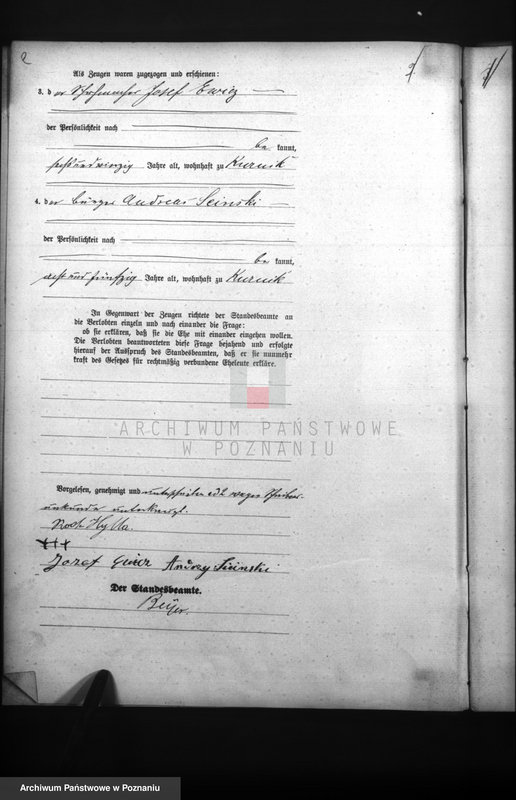 2
2
Als Zeugen waren zugezogen und erschienen:
3. der Schuhmacher Josef Ewicz
der Persönlichkeit nach
be kannt,
sechsundvierzig Jahre alt, wohnhaft zu Kurnik
4. der Bürger Andreas Scinski
der Persönlichkeit nach
be kannt,
acht und fünfzig Jahre alt, wohnhaft zu Kurnik
In Gegenwart der Zeugen richtete der Standesbeamte an
die Verlobten einzeln und nach einander die Frage:
ob sie erklären, daß sie die Ehe mit einander eingehen wollen.
Die Verlobten beantworteten diese Frage bejahend und erfolgte
hierauf der Ausspruch des Standesbeamten, daß er sie nunmehr
kraft des Gesetzes für rechtmäßig verbundene Eheleute erkläre.
ARCHIWUM PAŃSTWOWE
W POZNANIU
Vorgelesen, genehmigt und wegen Schreibens-
unkunde unterkreuzt.
+++
Jozef Andrzy
Der Standesbeamte.
Beyer.
Archiwum Państwowe w Poznaniu